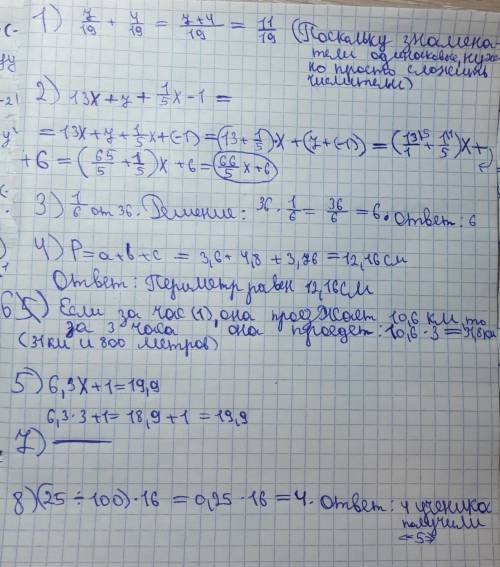 1) 7/19 + 4/19 = 7+4/19 = 11/19 (Поскольку знамена-
тели одинаковые, нуж-
но просто сложить
числители)
2) 13x + 7 + 1/5x - 1 =
= 13x + 7 + 1/5x + (-1) = (13 + 1/5) · x + (7 + (-1)) = (13/1 + 1/5)x +
+ 6 = (65/5 + 1/5)x + 6 = 66/5x + 6
3) 1/6 от 36. Решение: 36 · 1/6 = 36/6 = 6. Ответ: 6
4) P = a + b + c = 3,6 + 4,8 + 3,76 = 12,16 см
Ответ: Периметр равен 12,16 см
6) Если за час (1), она проезжает 10,6 км, то
за 3 часа, она проедет: 10,6 · 3 = 31,8 км
(31 км и 800 метров)
5) 6,3x + 1 = 19,9
6,3 · 3 + 1 = 18,9 + 1 = 19,9
7) —
8) (25 ÷ 100) · 16 = 0,25 · 16 = 4. Ответ: 4 ученика
получили
«5»